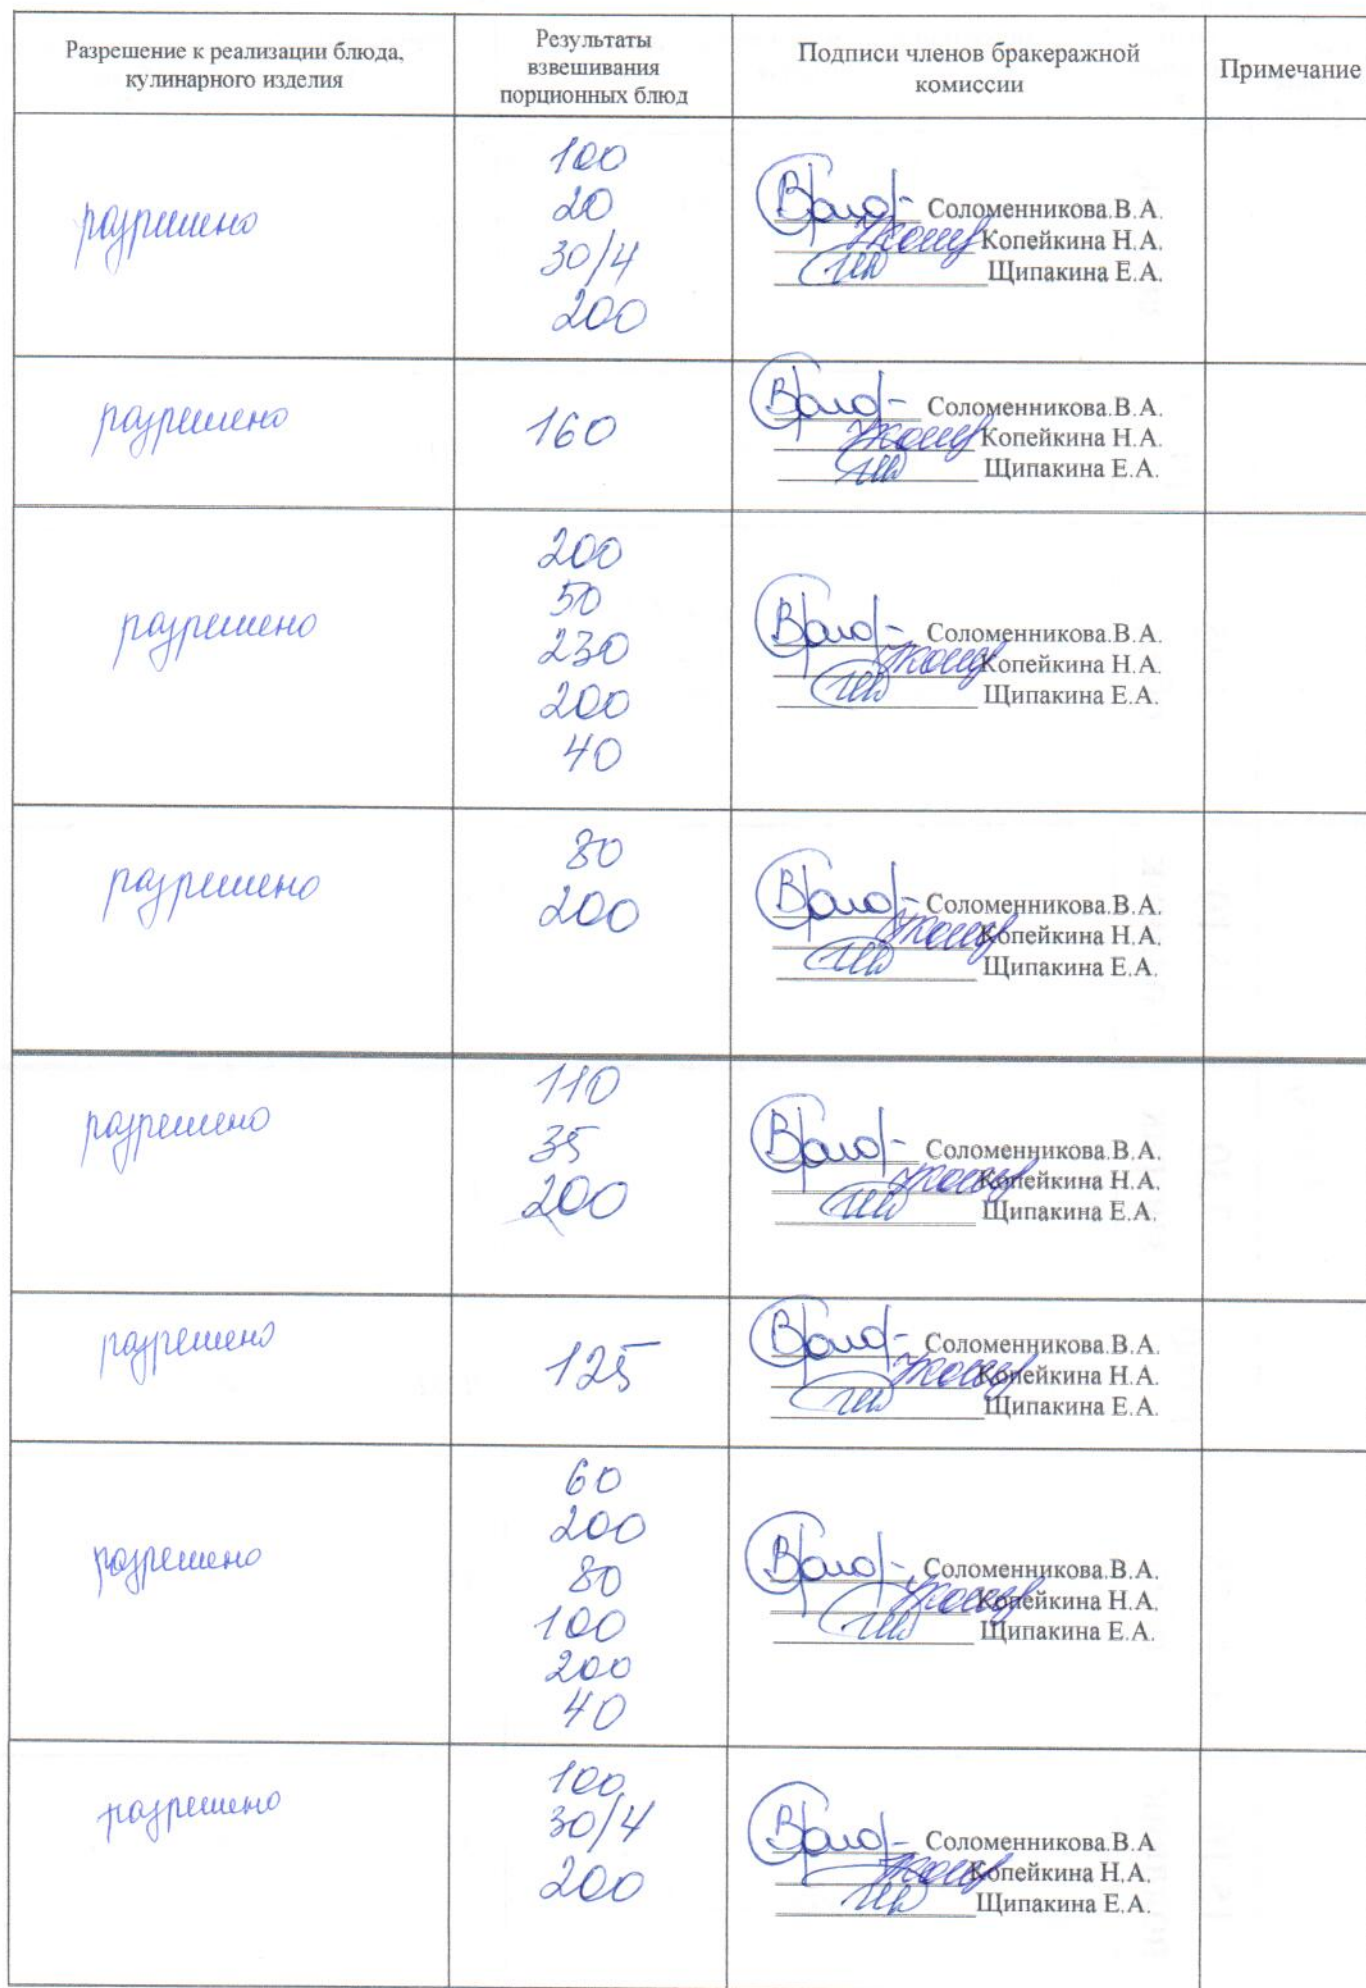 Разрешение к реализации блюда,
кулинарного изделия
Результаты
взвешивания
порционных блюд
Подписи членов бракеражной
комиссии
Примечание
разрешено
100
20
30/4
200
Соломенникова.В.А.
Копейкина Н.А.
Щипакина Е.А.
разрешено
160
Соломенникова.В.А.
Копейкина Н.А.
Щипакина Е.А.
разрешено
200
50
230
200
40
Соломенникова.В.А.
Копейкина Н.А.
Щипакина Е.А.
разрешено
80
200
Соломенникова.В.А.
Копейкина Н.А.
Щипакина Е.А.
разрешено
110
35
200
Соломенникова.В.А.
Копейкина Н.А.
Щипакина Е.А.
разрешено
125
Соломенникова.В.А.
Копейкина Н.А.
Щипакина Е.А.
разрешено
60
200
80
100
200
40
Соломенникова.В.А.
Копейкина Н.А.
Щипакина Е.А.
разрешено
100
30/4
200
Соломенникова.В.А
Копейкина Н.А.
Щипакина Е.А.